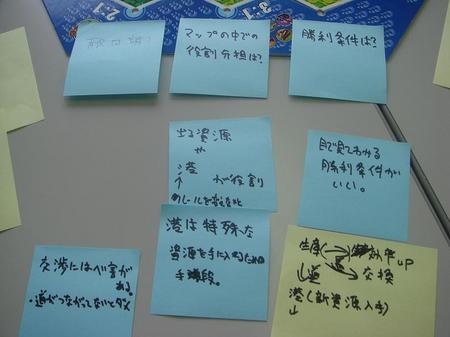 マップの中での
役割分担は?
勝利条件は?
出る資源
や
港
が役割
ルールを変えなければ
目で見てわかる
勝利条件が
いい。
港は特殊な
資源を手に入れるための
手段。
交渉には
・道がつながってないとダメ
生産
効率UP
交換
港(新資源入手)
2:1